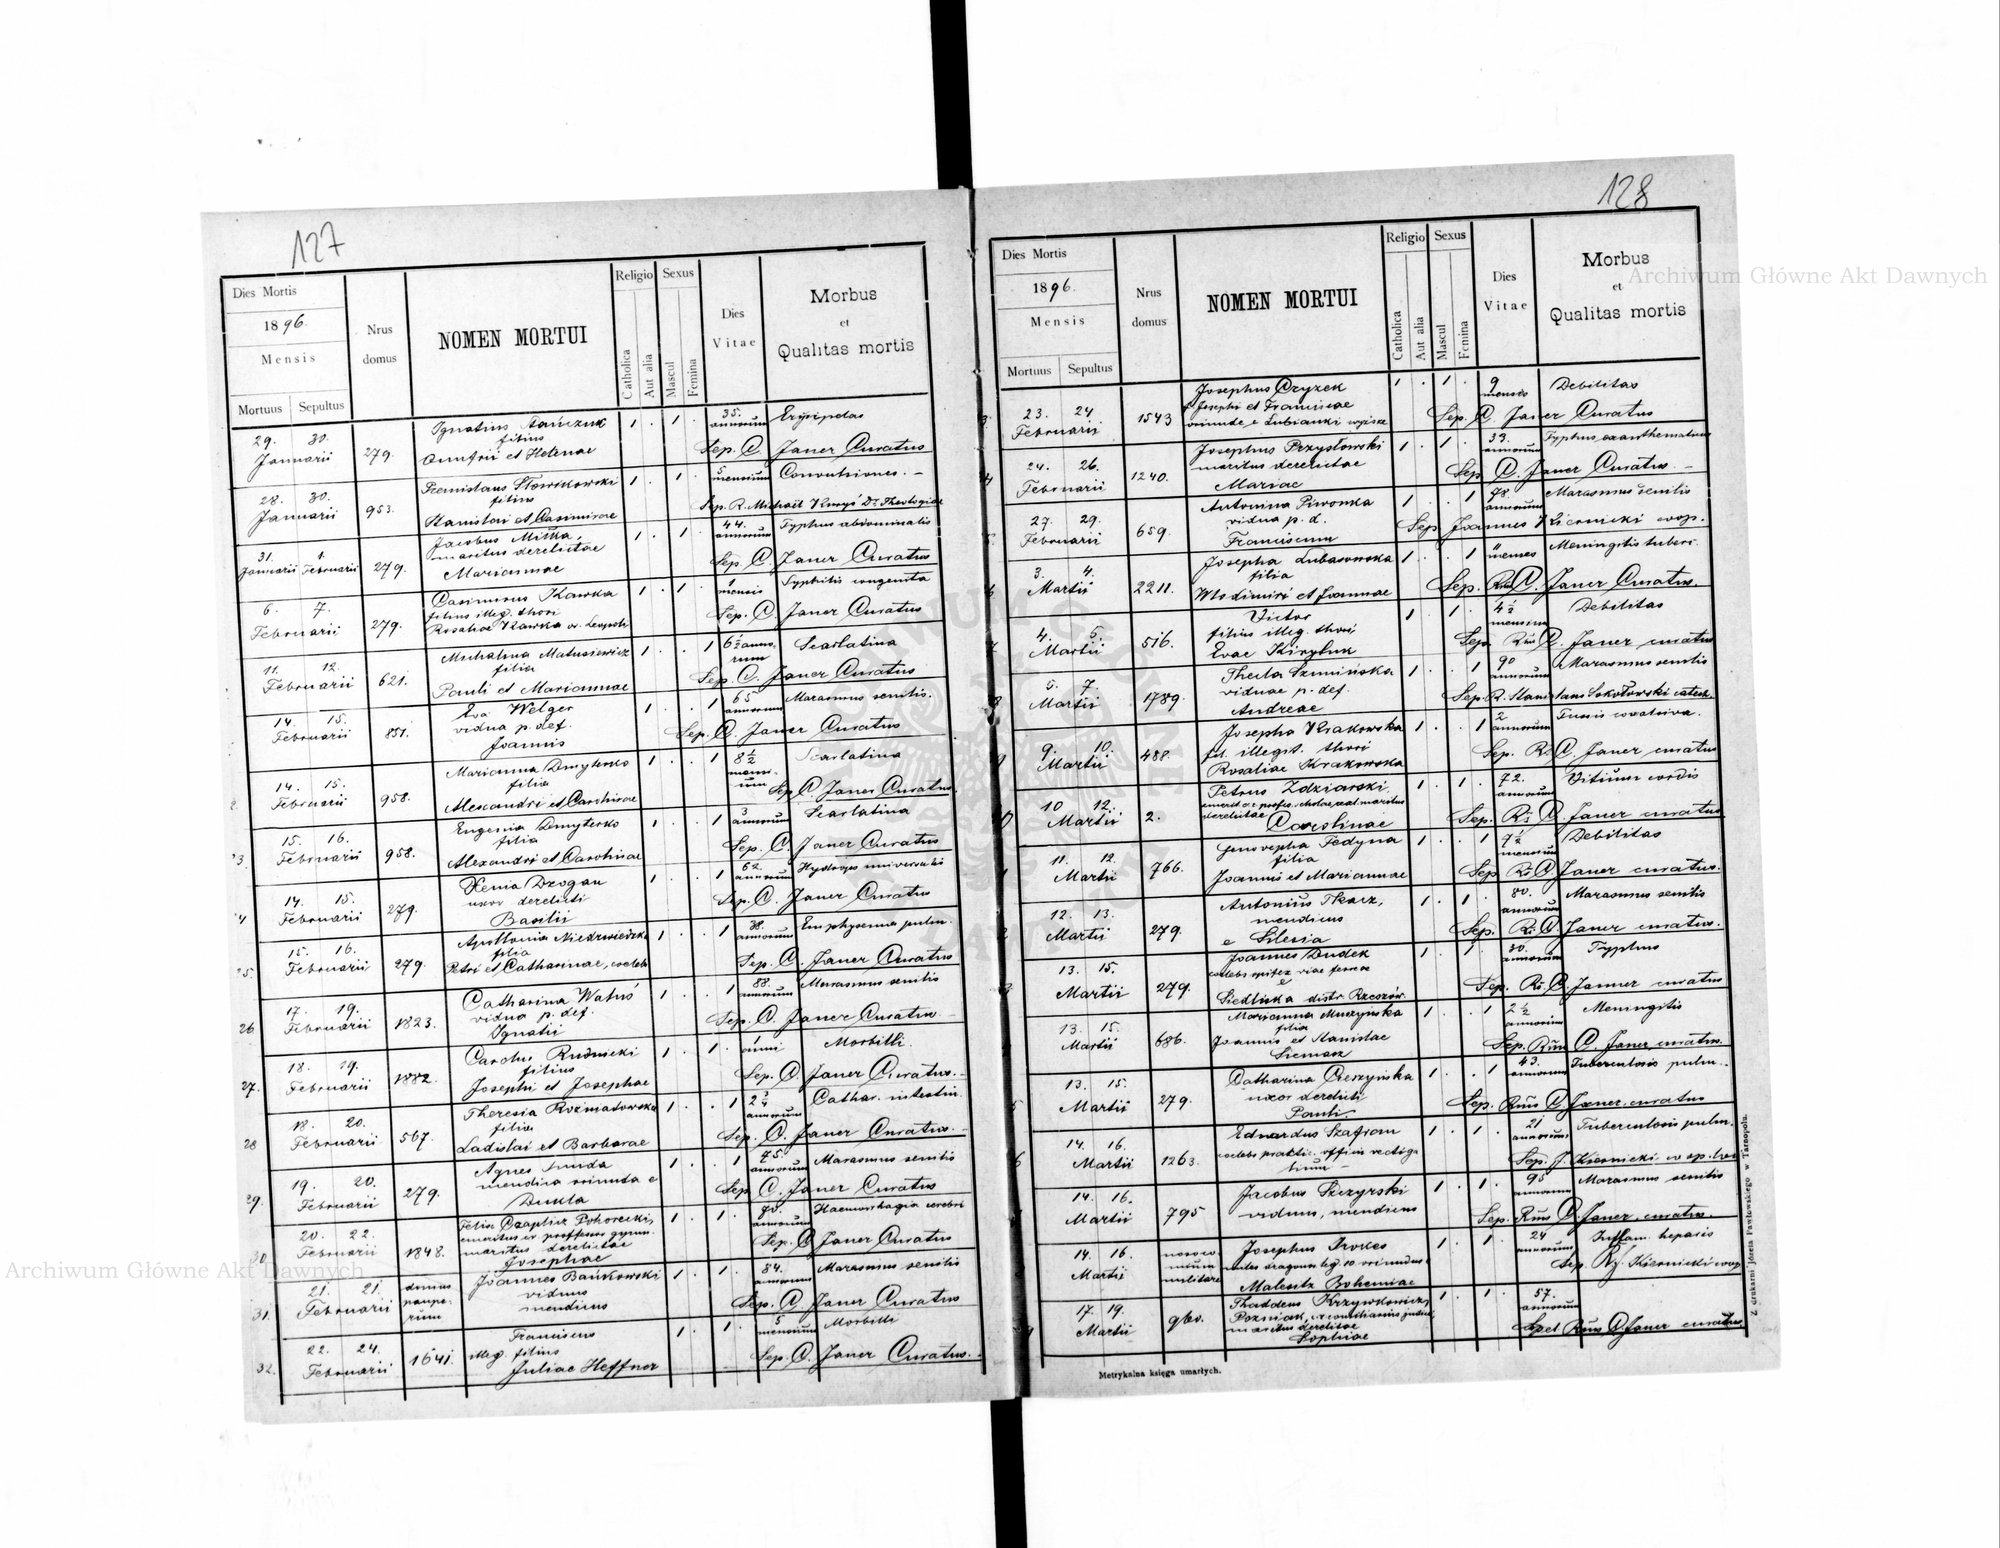 127
Dies Mortis
1896.
Mensis
Mortuus Sepultus
Nrus domus
NOMEN MORTUI
Religio
Catholica
Aut alia
Sexus
Mascul
Femina
Dies Vitae
Morbus
et
Qualitas mortis
29. 30. Januarii 279. Ignatius
filius
Onufrii et Helenae
1 . 1 . 35. annorum Erysipelas
Sep. C. Janer Curatus
28. 30. Januarii 953. Slowikowski
filius
Stanislai et Casimirae
1 . 1 . 5 mensium Convulsiones. –
Sep. R. Michael Dr. Theologiae
31. 1. Januarii Februarii 279. Jacobus Mitka,
maritus derelictae
Mariannae
1 . 1 . 44. annorum Typhus abdominalis
Sep. C. Janer Curatus
6. 7. Februarii 279. Casimirus Kawka
filius illeg. thori
Rosaliae Kawka
1 . 1 . 1 mensis Syphilis congenita
Sep. C. Janer Curatus
11. 12. Februarii 621. Michalina Matusiewicz
filia
Pauli et Mariannae
1 . . 1 6½ annorum Scarlatina
Sep. C. Janer Curatus
14. 15. Februarii 851. Eva Welger
vidua p. def.
Joannis
1 . . 1 65 annorum Marasmus senilis.
Sep. C. Janer Curatus
14. 15. Februarii 958. Marianna Dmyterko
filia
Alexandri et Carolinae
1 . . 1 8½ mensium Scarlatina
Sep C Janer Curatus
3. 15. 16. Februarii 958. Eugenia Dmyterko
filia
Alexandri et Carolinae
1 . . 1 3 annorum Scarlatina
Sep. C. Janer Curatus
4 14. 15. Februarii 279. Xenia Drogan
uxor derelicti
Basilii
1 . . 1 62. annorum Hydrops universalis
Sep. C. Janer Curatus
25 15. 16. Februarii 279. Apollonia Niedzwiedzka
filia
Petri et Catharinae, coelebs
1 . . 1 38. annorum Emphysema pulm.
Sep. C. Janer Curatus
26 17. 19. Februarii 1823. Catharina Watuś
vidua p. def.
Ignatii
1 . . 1 88. annorum Marasmus senilis
Sep. C. Janer Curatus. –
27. 18. 19. Februarii 1882. Carolus Rudnicki
filius
Josephi et Josephae
1 . 1 . 1 anni Morbilli.
Sep. C. Janer Curatus. –
28 18. 20. Februarii 567. Theresia Rozmatowska
filia
Ladislai et Barbarae
1 . . 1 2¾ annorum Cathar. intestin.
Sep. C. Janer Curatus. –
29. 19. 20. Februarii 279. Agnes
mendica oriunda e
Dukla
1 . . 1 75. annorum Marasmus senilis
Sep. C. Janer Curatus
30. 20. 22. Februarii 1848. Felix Czaplicz Pohorecki,
emeritus cr. professor gymn.
maritus derelictae
Josephae
1 . 1 . 70. annorum Haemorrhagia cerebri
Sep. C Janer Curatus
31. 21. 21. Februarii domus pauperum Joannes Bańkowski
viduus
mendicus
1 . 1 . 84. annorum Marasmus senilis
Sep. C. Janer Curatus
32. 22. 24. Februarii 1641. Franciscus
illeg. filius
Juliae Heffner
1 . 1 . 5 mensium Morbilli
Sep. C. Janer Curatus. –
128
Dies Mortis
1896.
Mensis
Mortuus Sepultus
Nrus domus
NOMEN MORTUI
Religio
Catholica
Aut alia
Sexus
Mascul
Femina
Dies Vitae
Morbus
et
Qualitas mortis
23. 24 Februarii 1543 Josephus Czyzek
f. Josephi et Franciscae
oriundae Lubianki wyższe
1 . 1 . 9 menses Debilitas
Sep. C. Janer Curatus
24. 26. Februarii 1240. Josephus Przysłowski
maritus derelictae
Mariae
1 . 1 . 33. annorum Typhus exanthematicus
Sep. C. Janer Curatus. –
27. 29. Februarii 659. Antonina Piwonka
vidua p. d.
Franciscum
1 . . 1 78. annorum Marasmus senilis
Sep. Joannes Kiernicki coop.
3. 4. Martii 2211. Josepha Lubasowska
filia
Wlodimiri et Joannae
1 . . 1 11 menses Meningitis tuberc.
Sep. Rms C. Janer Curatus.
4. 5. Martii 516. Victor
filius illeg. thori
Evae Kiryluk
1 . 1 . 4½ mensium Debilitas
Sep. Rms C. Janer curatus
5. 7. Martii 1789. Thecla Szumińska
viduae p. def.
Andreae
1 . . 1 90 annorum Marasmus senilis
Sep. R. Stanislaus Sokołowski catech.
9. 10. Martii 488. Josepha Krakowska
fil. illegit. thori
Rosaliae Krakowska
1 . . 1 2 annorum Tussis convulsiva.
Sep. Rs C. Janer curatus
10 12. Martii 2. Petrus Zdziarski,
emerit. cr. profes. scholae real. maritus
derelictae Carolinae
1 . 1 . 72. annorum Vitium cordis
Sep. Rs C. Janer curatus
11. 12. Martii 766. Genovepha Fedyna
filia
Joannis et Mariannae
1 . . 1 9½ mensium Debilitas
Sep Rs C Janer curatus.
12. 13. Martii 279. Antonius Tkacz,
mendicus
e Silesia
1 . 1 . 80. annorum Marasmus senilis
Sep. Rs C. Janer curatus.
13. 15. Martii 279. Joannes Dudek
coelebs opifex viae ferreae
e
Siedliska distr. Rzeszów
1 . 1 . 30. annorum Typhus
Sep. Rs. C. Janner curatus
13. 15. Martii 686. Marianna Muczyńska
filia
Joannis et Stanislae
Siemasz
1 . . 1 2½ annorum Meningitis
Sep. Rms C. Janer curatus.
13. 15. Martii 279. Catharina Cieszyńska
uxor derelicti
Pauli.
1 . . 1 43. annorum Tuberculosis pulm.
Sep. Rms C. Janer curatus
14. 16. Martii 1263. Eduardus Szafran
coelebs praktic. officii vectiga
lium –
1 . 1 . 21 annorum Tuberculosis pulm.
Sep. J. Kiernicki
14. 16. Martii 795 Jacobus Szczyrski
viduus, mendicus
1 . 1 . 95 annorum Marasmus senilis
Sep. Rms C. Janer. curatus.
14. 16. Martii nosocomium militare Josephus
miles dragon. leg. 10. oriundus
Malesitz Bohemiae
1 . 1 . 24 annorum Inflam. hepatis
Sep. Kiernicki coop
17. 19. Martii 960. Thaddeus Krzywkowicz,
Pozniak, cr. consiliarius judic.
maritus derelictae
Sophiae
1 . 1 . 57. annorum
Sepel Rms C Janer curatus
Metrykalna księga umarłych.
Z drukarni Józefa Pawłowskiego w Tarnopolu.
Archiwum Główne Akt Dawnych
Archiwum Główne Akt Dawnych